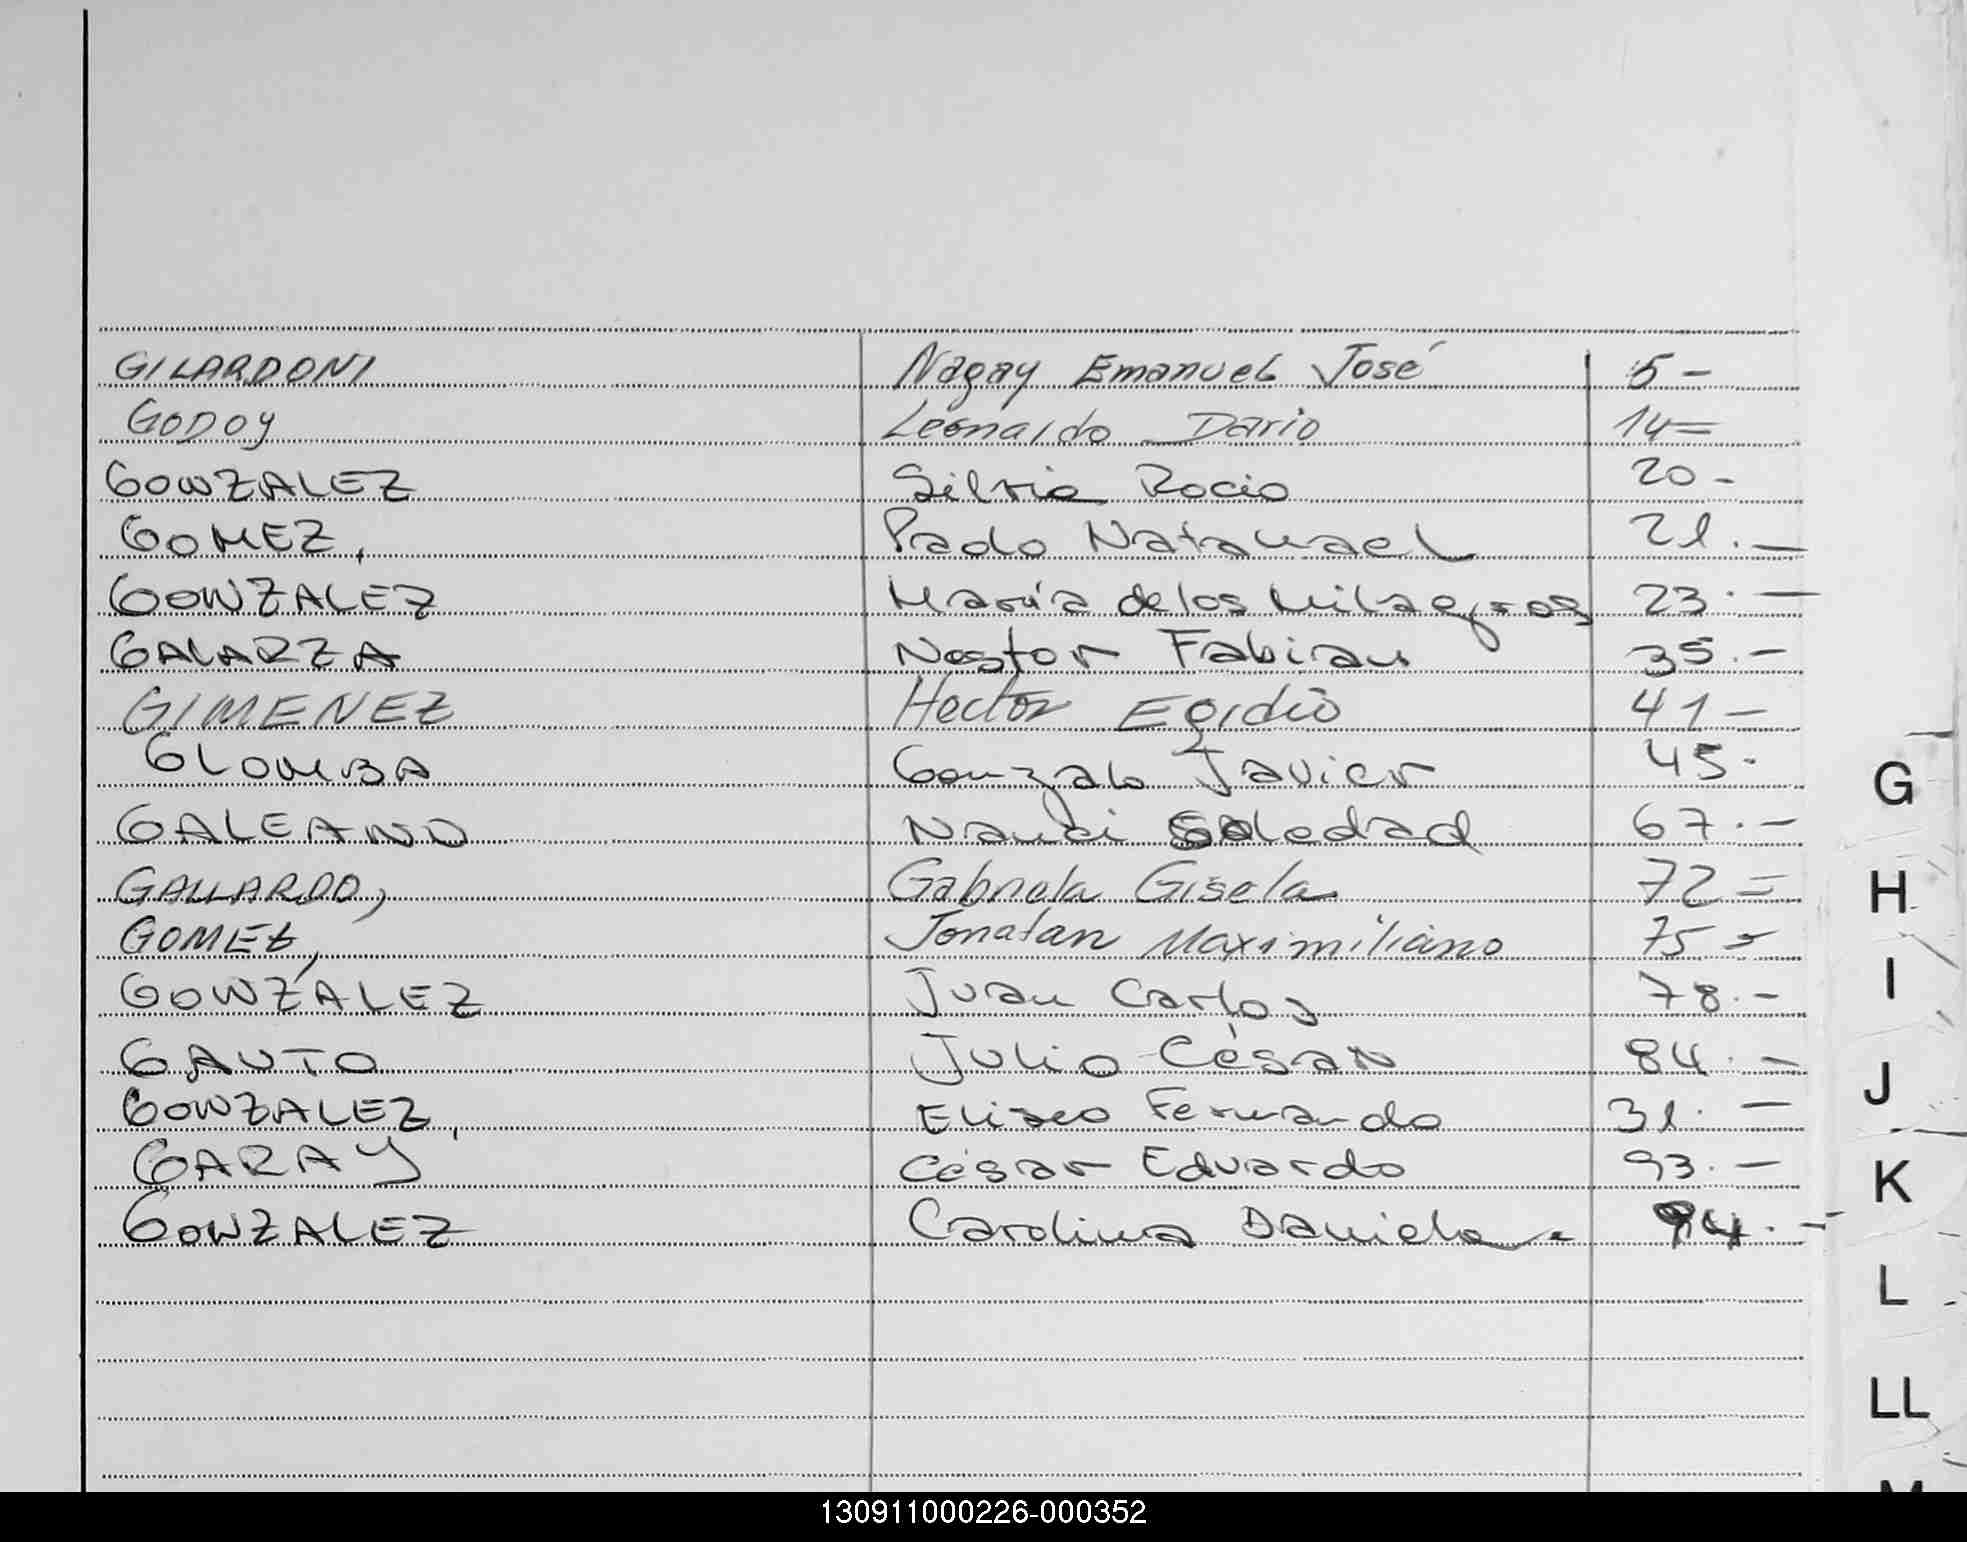 GILARDONI Nagay Emanuel José 5 -
GODOY Leonaldo Dario 14 =
GONZALEZ Silvia Rocio 20 -
GOMEZ, Pablo Natanael 21. -
GONZALEZ María de los Milagros 23. -
GALARZA Nestor Fabian 35. -
GIMENEZ Hector Egidio 41 -
GLOMBA Gonzalo Javier 45.
GALEANO Nanci Soledad 67. -
GALLARDO, Gabriela Gisela 72 =
GOMEZ, Jonatan Maximiliano 75 =
GONZÁLEZ Juan Carlos 78. -
GAUTO Julio César 84. -
GONZALEZ, Eliseo Fernando 31. -
GARAY César Eduardo 93. -
GONZALEZ Carolina Daniela. 94. -
G
H
I
J
K
L
LL
M
130911000226-000352